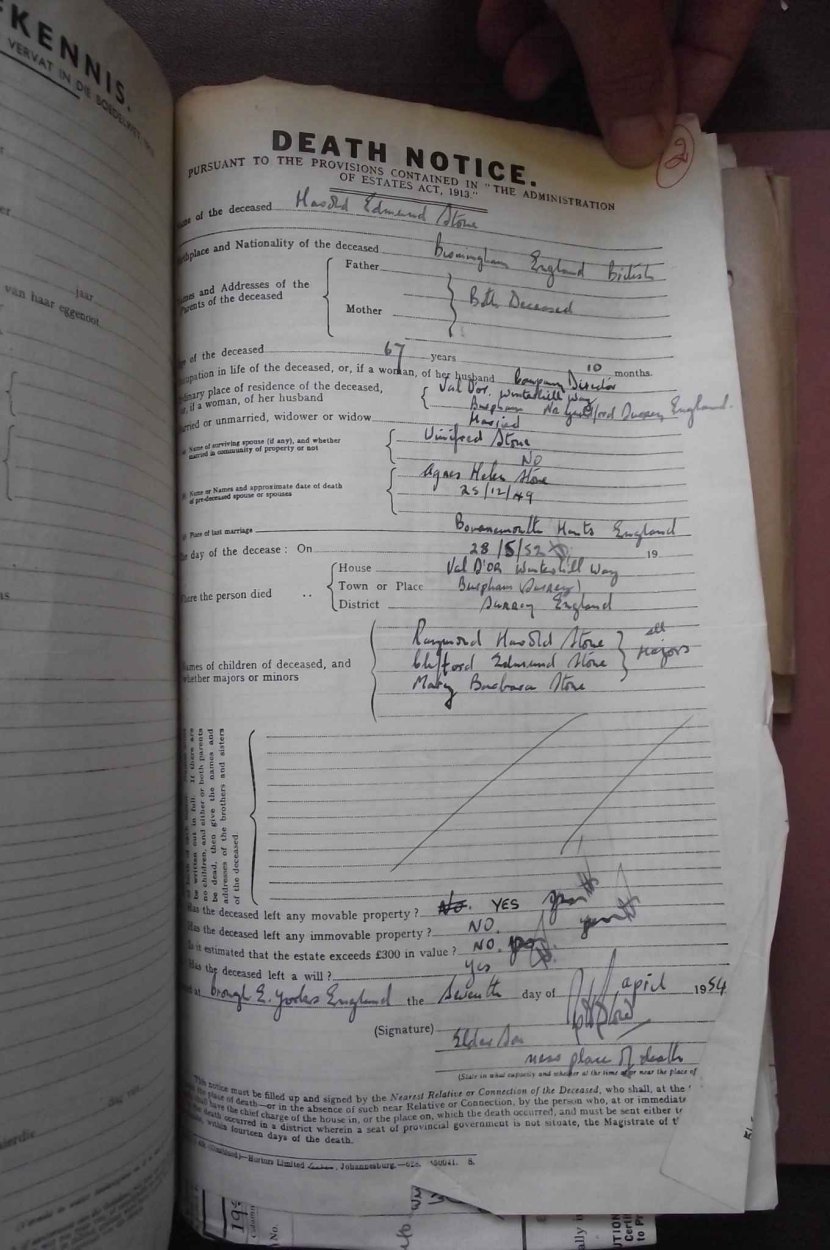 KENNIS.
VERVAT IN DIE BOEDELWET
jaar
van haar eggenoot
DEATH NOTICE.
PURSUANT TO THE PROVISIONS CONTAINED IN "THE ADMINISTRATION
OF ESTATES ACT, 1913."
of the deceased Harold Edmund Stone
and Nationality of the deceased Birmingham England British
and Addresses of the Parents of the deceased
Father
Mother
Both Deceased
of the deceased 67 years 10 months.
in life of the deceased, or, if a woman, of her husband Company Director
place of residence of the deceased, if a woman, of her husband
Val D'or. Winterhill Way
Burpham Nr Guildford Surrey England.
or unmarried, widower or widow Married
Name of surviving spouse (if any), and whether married in community of property or not
Winifred Stone
NO
Name or Names and approximate date of death of pre-deceased spouse or spouses
Agnes Helen Stone
25/12/49
Place of last marriage Bournemouth Hants England
day of the decease: On 28/5/52 19
the person died
House Val D'OR Winterhill Way
Town or Place Burpham (Surrey)
District Surrey England
of children of deceased, and whether majors or minors
Raymond Harold Stone
Clifford Edmund Stone
Mary Barbara Stone
all Majors
be written out in full. If there are
no children, and either or both parents
be dead, then give the names and
addresses of the brothers and sisters
of the deceased.
Has the deceased left any movable property? No. YES
Has the deceased left any immovable property? NO.
Is it estimated that the estate exceeds £300 in value? NO.
Has the deceased left a will? Yes
at Brough E. Yorks England the Seventh day of april 1954
(Signature)
Elder Son
near place of death
(State in what capacity and whether at the time of or near the place of
This notice must be filled up and signed by the Nearest Relative or Connection of the Deceased, who shall, at the
place of death—or in the absence of such near Relative or Connection, by the person who, at or immediate
have the chief charge of the house in, or the place on, which the death occurred, and must be sent either
the death occurred in a district wherein a seat of provincial government is not situate, the Magistrate of
within fourteen days of the death.
Hortors Limited Johannesburg.